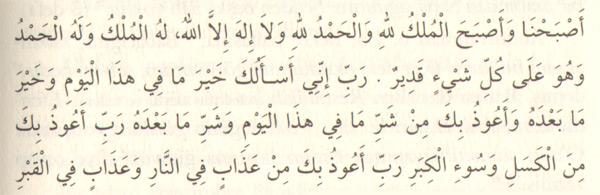 أَصْبَحْنَا وَأَصْبَحَ الْمُلْكُ لِلّهِ وَالْحَمْدُ لِلّهِ وَلاَ إِلهَ إِلاَّ اللّهُ، لَهُ الْمُلْكُ وَلَهُ الْحَمْدُ
وَهُوَ عَلَى كُلِّ شَيْءٍ قَدِيرٌ . رَبِّ إِنِّي أَسْأَلُكَ خَيْرَ مَا فِي هذَا الْيَوْمِ وَخَيْرَ
مَا بَعْدَهُ وَأَعُوذُ بِكَ مِنْ شَرِّ مَا فِي هذِا الْيَوْمِ وَشَرِّ مَا بَعْدَهُ رَبِّ أَعُوذُ بِكَ
مِنَ الْكَسَلِ وَسُوءِ الْكِبَرِ رَبِّ أَعُوذُ بِكَ مِنْ عَذَابٍ فِي النَّارِ وَعَذَابٍ فِي الْقَبْرِ